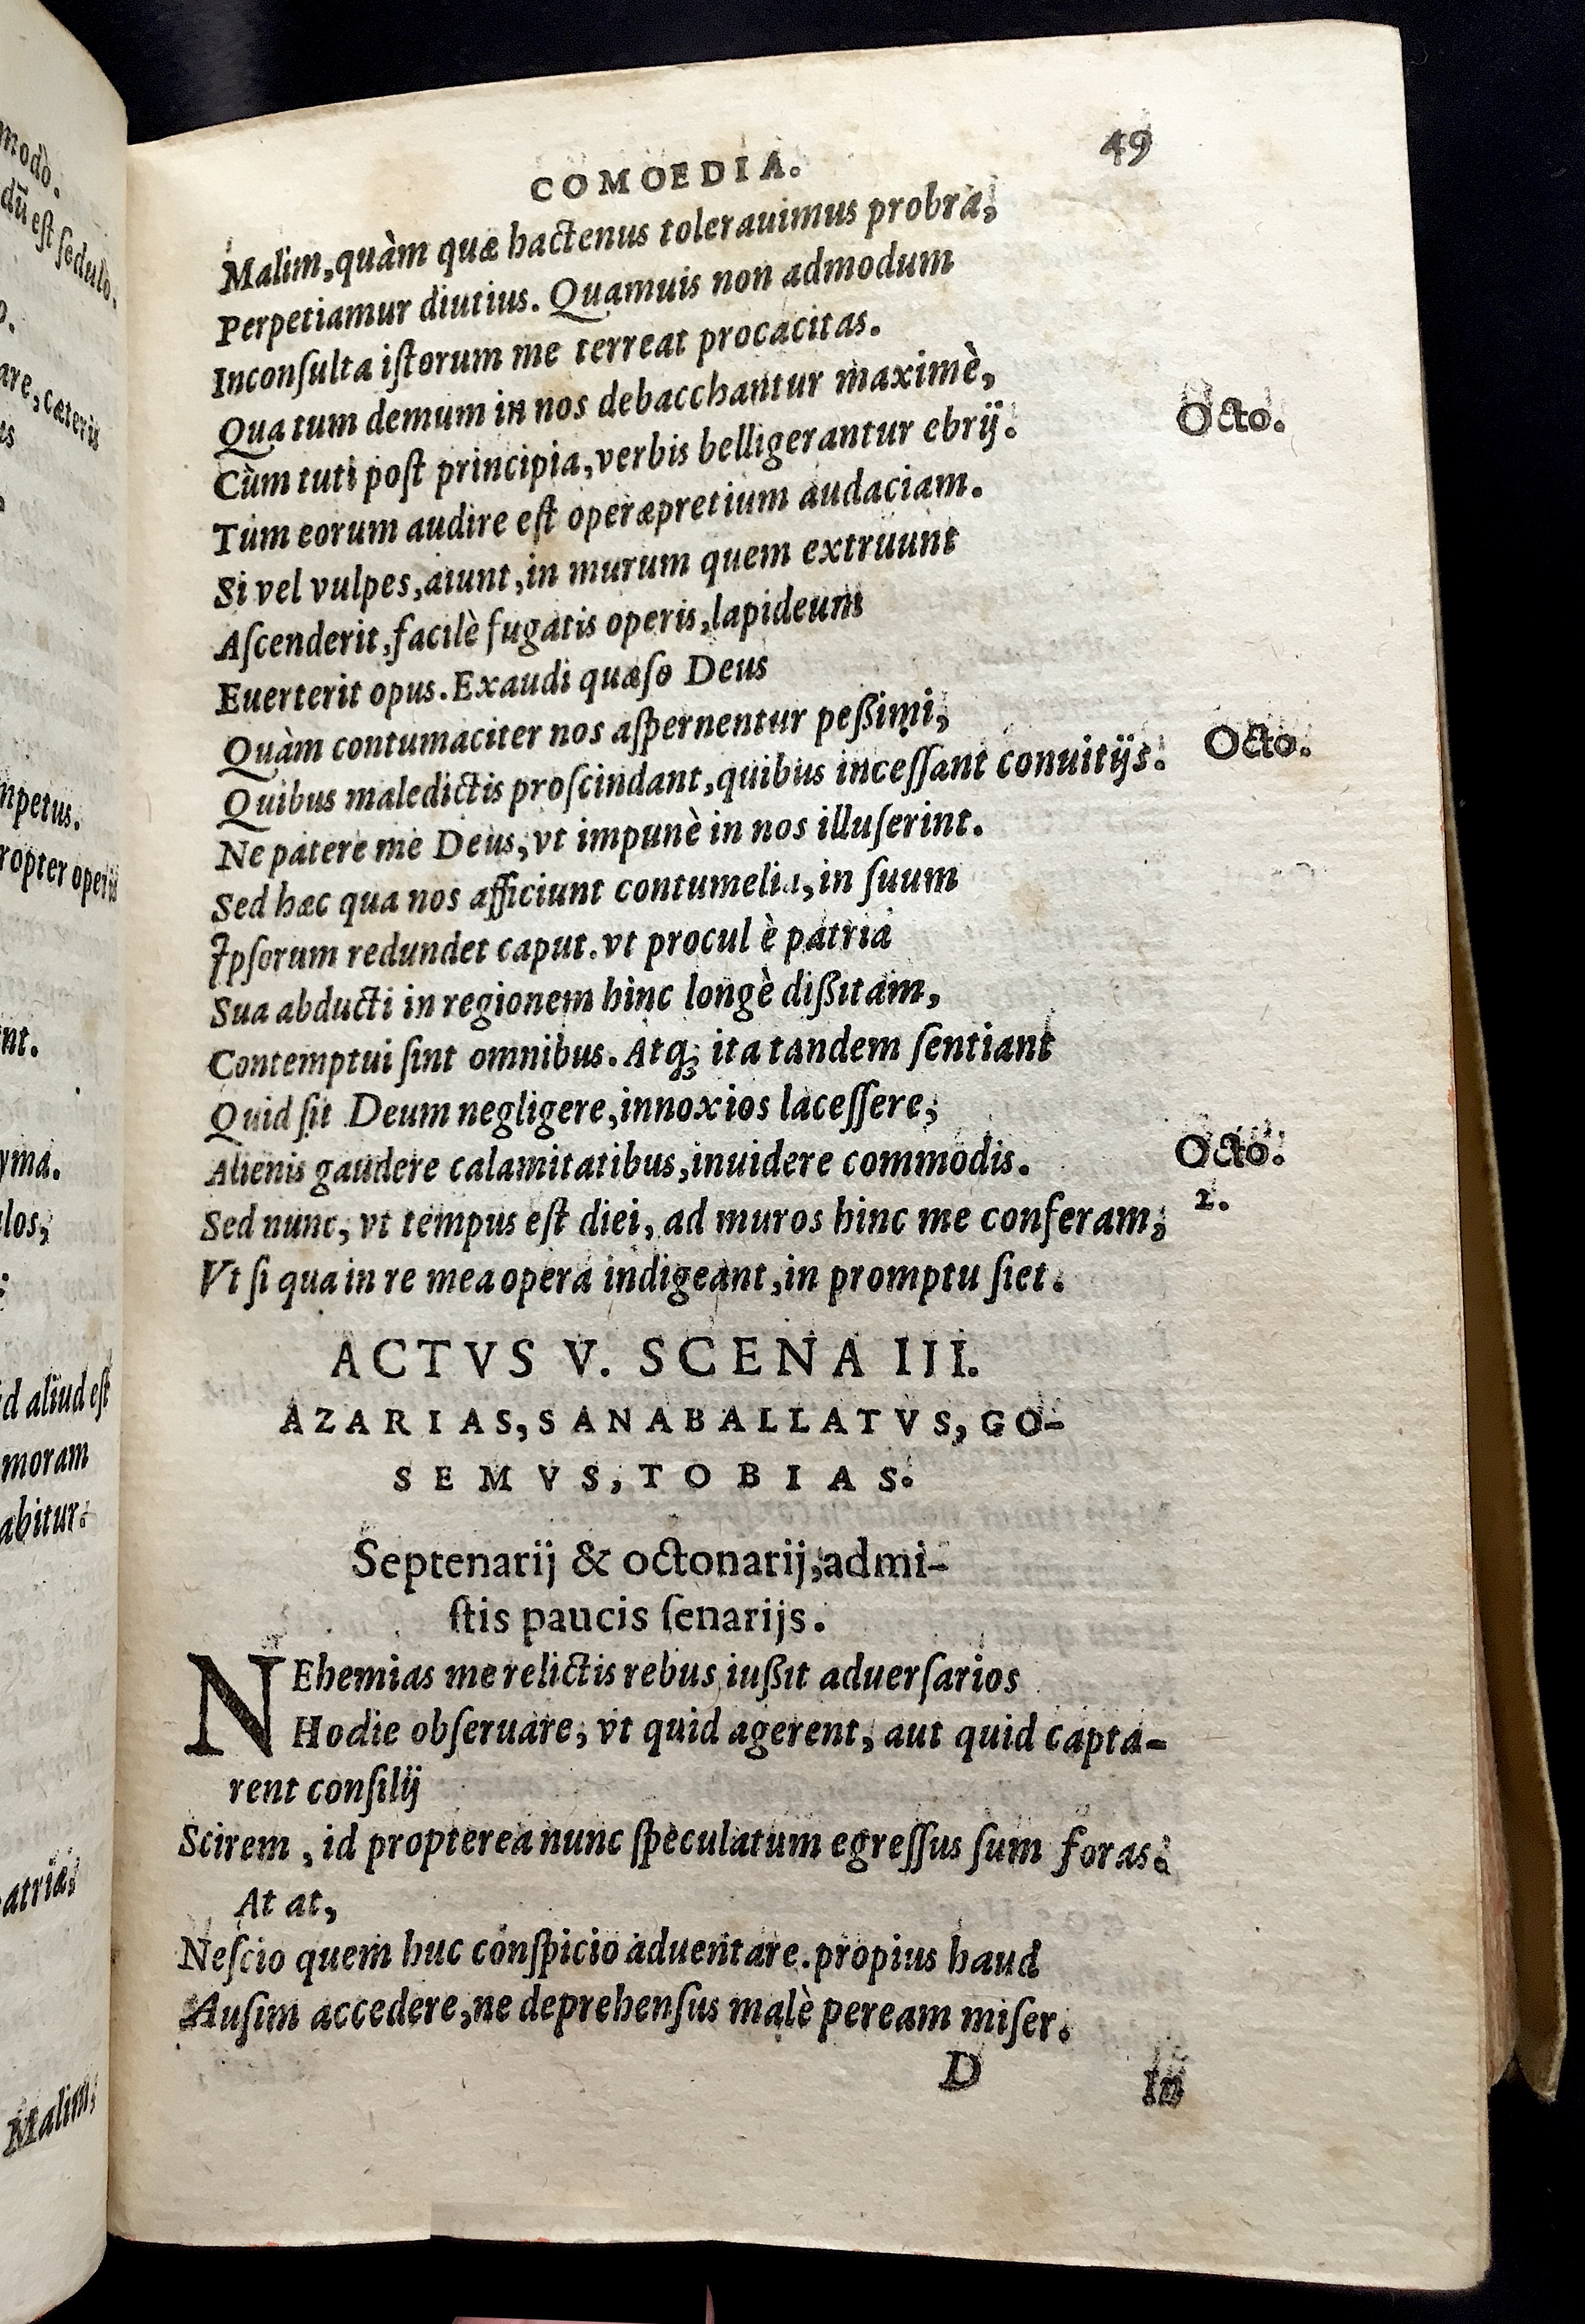 COMOEDIA. 49
Malim, quàm quæ hactenus tolerauimus probra,
Perpetiamur diutius. Quamuis non admodum
Inconſulta iſtorum me terreat procacitas.
Qua tum demum in nos debacchantur maximè, Octo.
Cùm tuti poſt principia, verbis belligerantur ebrij.
Tum eorum audire eſt operæpretium audaciam.
Si vel vulpes, aiunt, in murum quem extruunt
Aſcenderit, facilè fugatis operis, lapideum
Euerterit opus. Exaudi quæſo Deus
Quàm contumaciter nos aſpernentur peßimi,
Quibus maledictis proſcindant, quibus inceſſant conuitijs. Octo.
Ne patere me Deus, vt impunè in nos illuſerint.
Sed hæc qua nos afficiunt contumelia, in ſuum
Ipſorum redundet caput. vt procul è patria
Sua abducti in regionem hinc longè dißitam,
Contemptui ſint omnibus. Atq; ita tandem ſentiant
Quid ſit Deum negligere, innoxios laceſſere,
Alienis gaudere calamitatibus, inuidere commodis. Octo.
Sed nunc, vt tempus eſt diei, ad muros hinc me conferam, 2.
Vt ſi qua in re mea opera indigeant, in promptu ſiet.
ACTVS V. SCENA III.
AZARIAS, SANABALLATVS, GO-
SEMVS, TOBIAS.
Septenarij & octonarij, admi-
ſtis paucis ſenarijs.
NEhemias me relictis rebus iußit aduerſarios
Hodie obſeruare, vt quid agerent, aut quid capta-
rent conſilij
Scirem, id propterea nunc ſpeculatum egreſſus ſum foras.
At at,
Neſcio quem huc conſpicio aduentare. propius haud
Auſim accedere, ne deprehenſus malè peream miſer.
D In
modò.
dũ eſt ſedulò.
are, cæteris
mpetus.
ropter operis
nt.
yma.
los,
d aliud eſt
moram
abitur.
atria,
Malim,